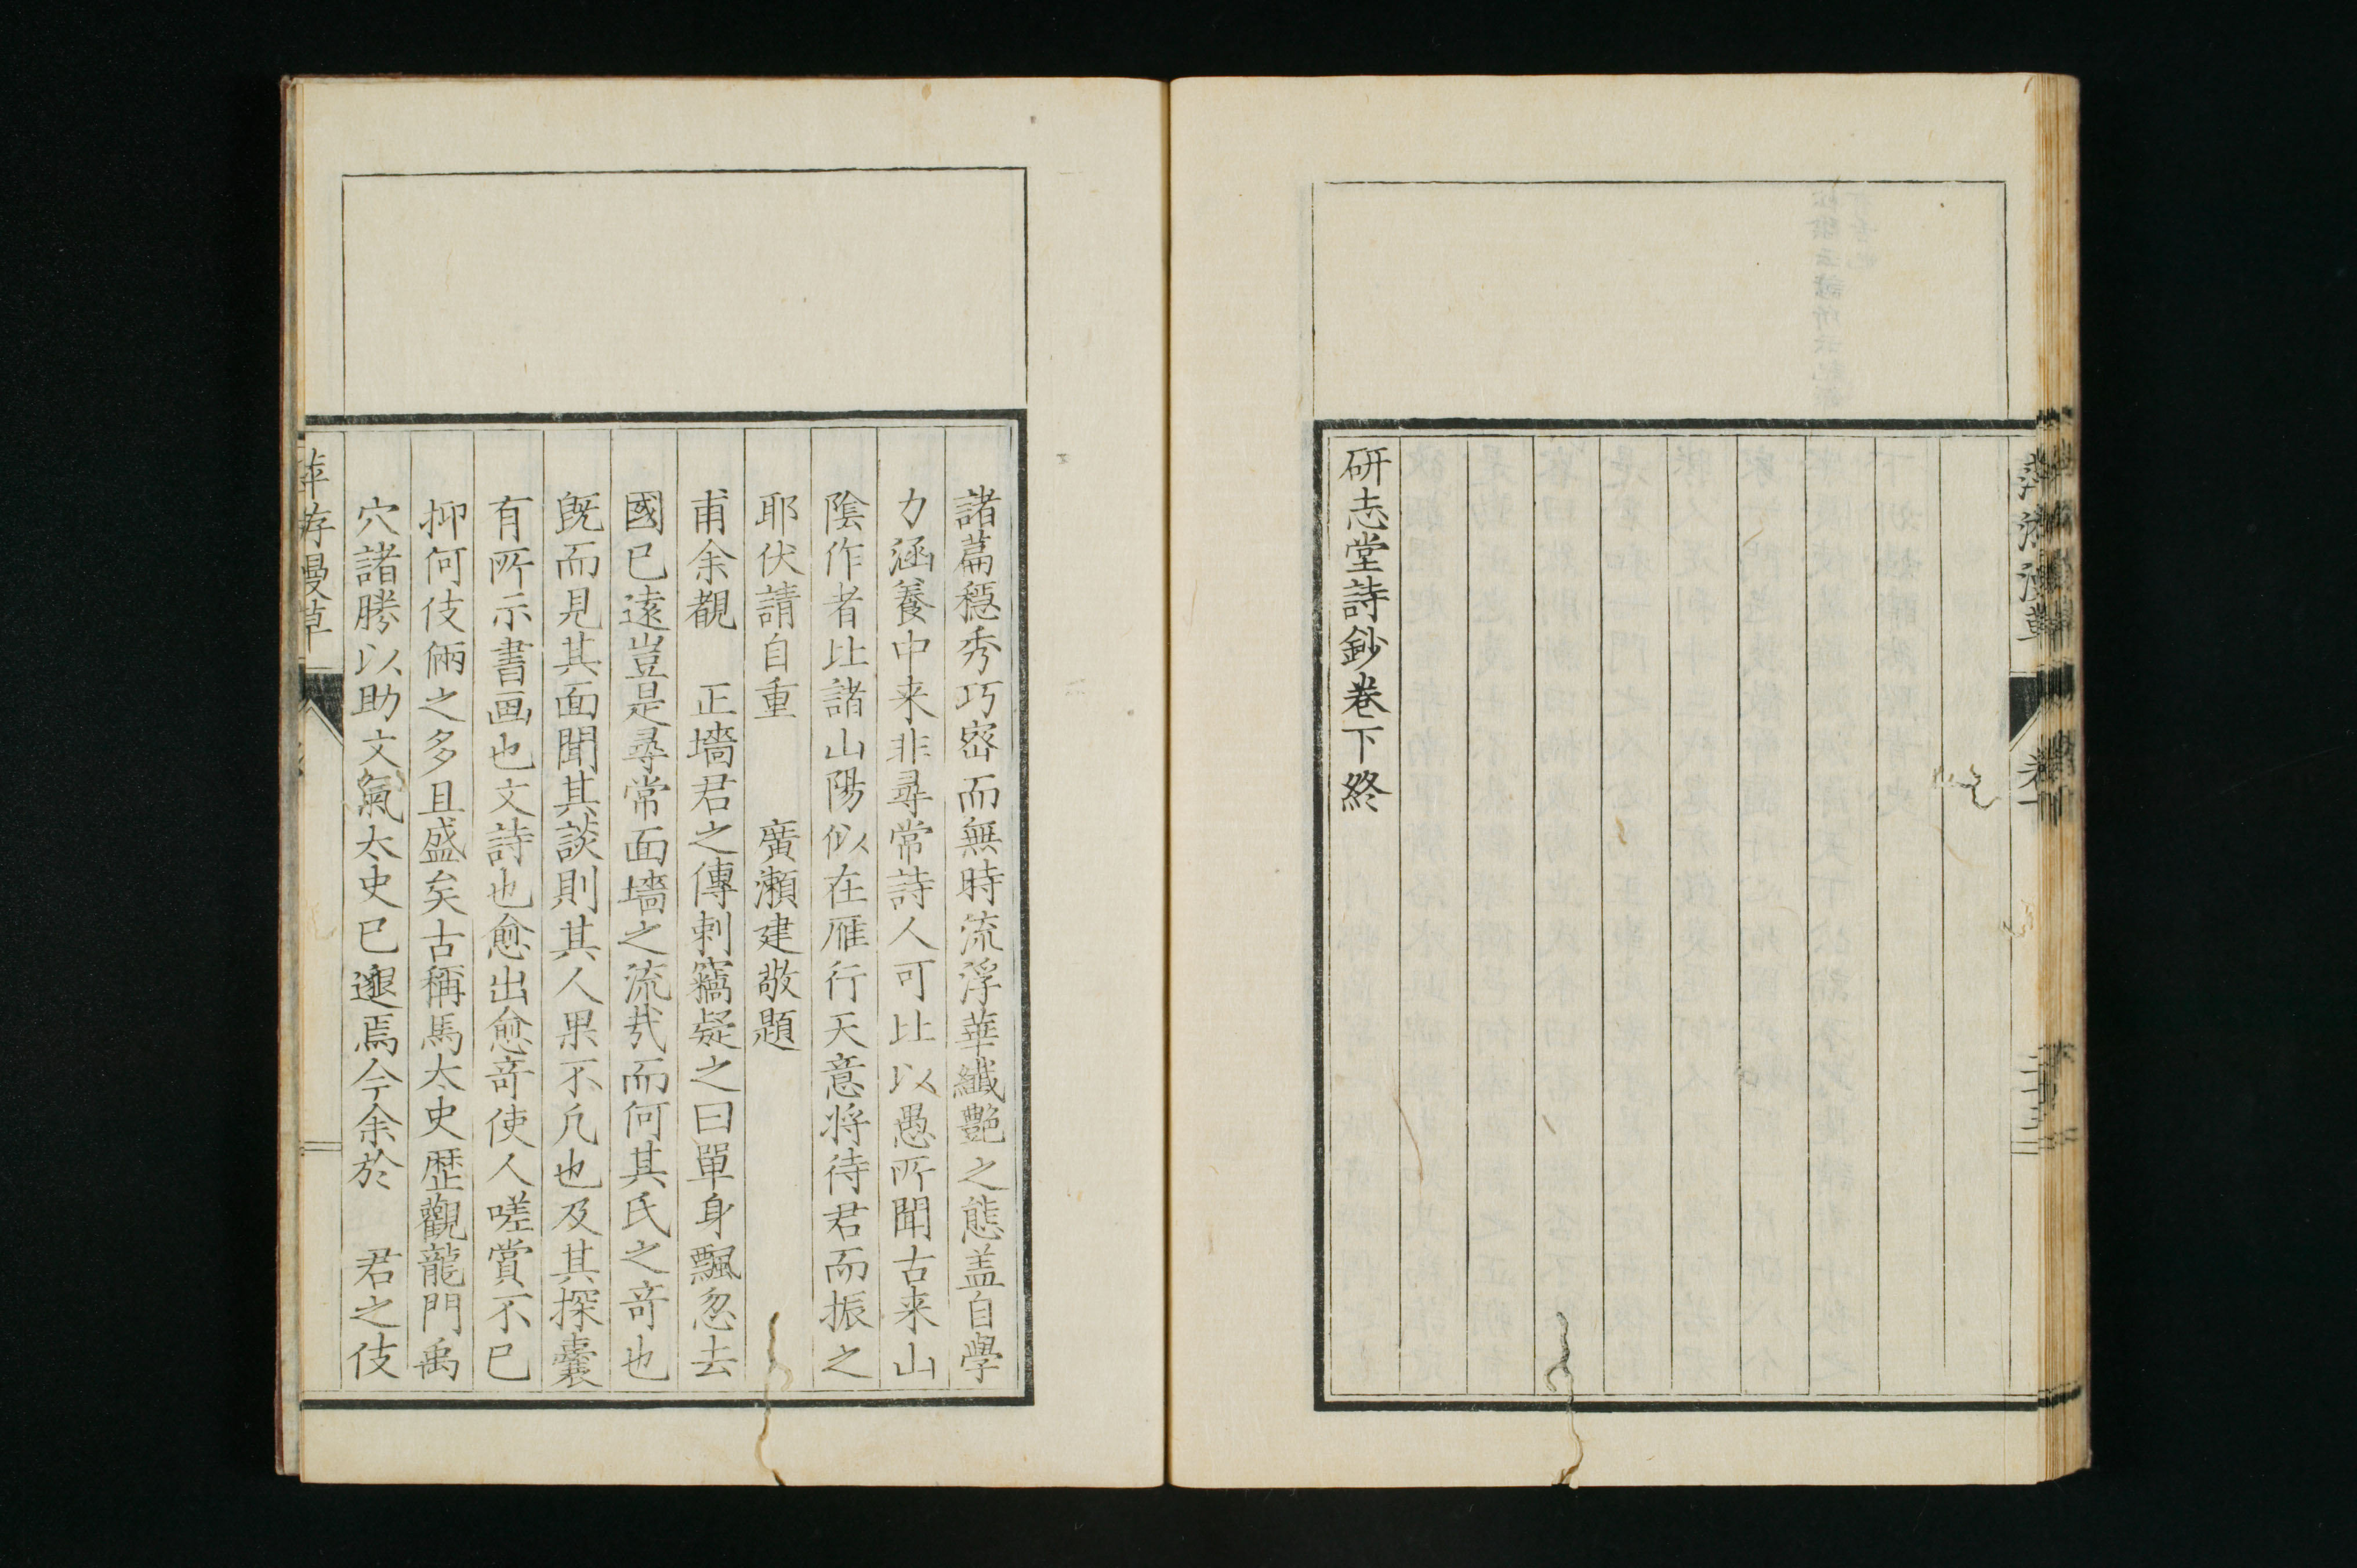 研志堂詩鈔巻下終
諸篇穏秀巧密而無時流浮華纎艶之態盖自學
力涵養中来非尋常詩人可比以愚所聞古来山
陰作者比諸山陽似在雁行天意将待君而振之
耶伏請自重　　廣瀬建敬題
甫余覩　正墻君之傳刺竊疑之曰單身飄忽去
國已遠豈是尋常面墻之流㢤而何其氏之竒也
既而見其面聞其談則其人果不凢也及其探嚢
有所示書画也文詩也愈出愈竒使人嗟賞不已
抑何伎倆之多且盛矣古稱馬太史歴觀龍門禹
穴諸勝以助文氣太史已邈焉今余於　君之伎
萍游漫草